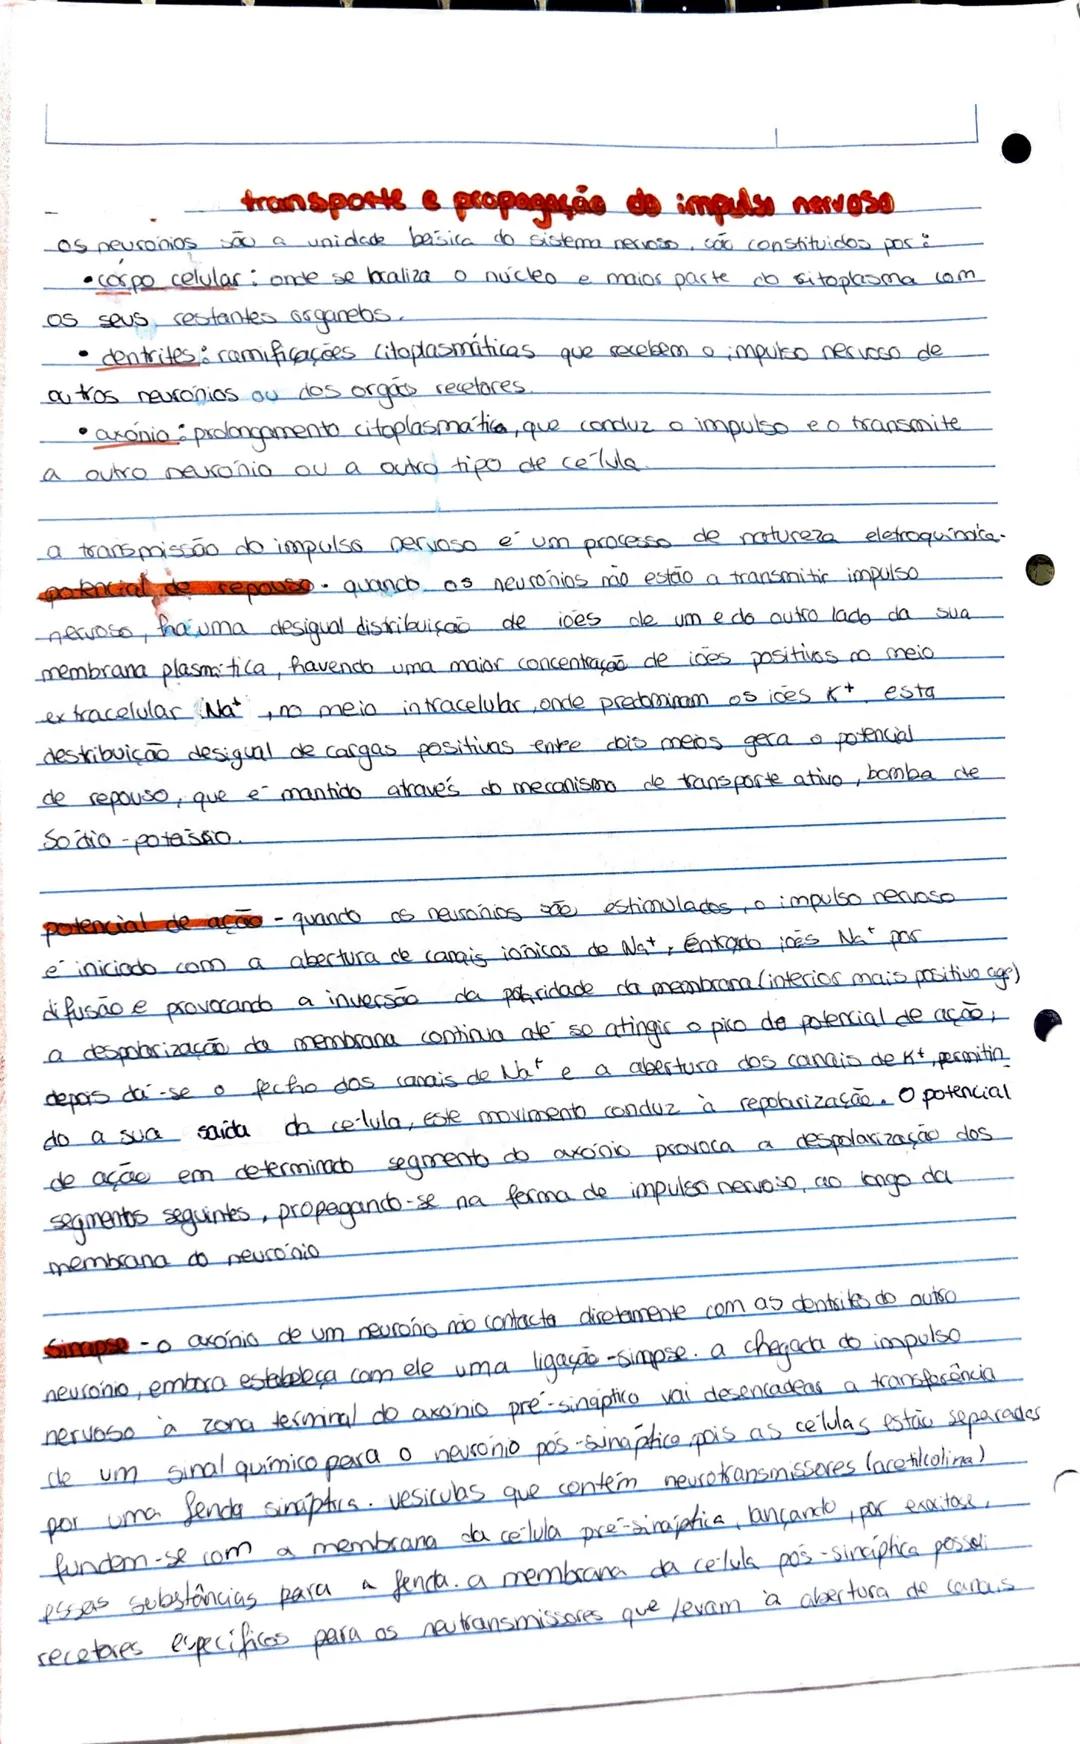 transporte e propagação do impulso nervoso
os neurónios são a unidade básica do sistema nervoso, são constituidos por:
• corpo celular: onde se localiza o núcleo e maior parte do sitoplasma com
os seus restantes organelos.
• dentrites: ramificações citoplasmáticas que recebem o impulso nervoso de
outros neurónios ou dos orgãos recetores.
• axónio: prolongamento citoplasmática, que conduz o impulso e o transmite
a outro neurónio ou a outro tipo de célula.
a transmissão do impulso nervoso é um processo de natureza eletroquímica.
potencial de repouso - quando os neurónios não estão a transmitir impulso
nervoso, há uma desigual distribuição de iões de um e do outro lado da sua
membrana plasmática, havendo uma maior concentração de iões positivos no meio
extracelular Na+, no meio intracelular, onde predominam os iões K+. esta
destribuição desigual de cargas positivas entre dois meios gera o potencial
de repouso, que é mantido através do mecanismo de transporte ativo, bomba de
Sódio-potássio.
potencial de ação - quando os neurónios são estimulados, o impulso nervoso
é iniciado com a abertura de canais iónicos de Na+, Entrado iões Na+ por
difusão e provocando a inversão da polaridade da membrana (interior mais positivo ago)
a despolarização da membrana continua até se atingir o pico do potencial de ação,
depois dá-se o fecho dos canais de Na+ e a abertura dos canais de K+, permitin
do a sua saída da célula, este movimento conduz à repolarização. O potencial
de ação em determinado segmento do axónio provoca a despolarização dos
segmentos seguintes, propagando-se na forma de impulso nervoso, ao longo da
membrana do neurónio
Sinapse - o axónio de um neurónio não contacta diretamente com as dentrites do outro
neurónio, embora estabeleça com ele uma ligação-simpse. a chegada do impulso
nervoso à zona terminal do axónio pré-sináptico vai desencadear a transferência
de um sinal químico para o neurónio pós-sináptico, pois as células estão separadas
por uma fenda sináptica. vesículas que contém neurotransmissores (acetilcolina)
fundem-se com a membrana da célula pré-sináptica, lançando, por exocitose,
essas substâncias para a fenda. a membrana da célula pós-sináptica possui
recetores específicos para os neutransmissores que levam à abertura de canais